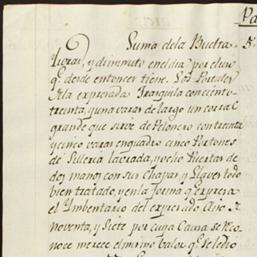 Va
Suma dela Buelta
y diminuto en el dia por el uso
qe. desde entonces tiene. Las Paredes
dela expresada tranquila con ciento
treinta, y una varas de largo un corral
grande que sirve de Pelonero con treinta
y cinco varas en quadro cinco Portones
de Silleria labrada, y ocho Puertas de
dos manos con sus chapas y Llaves todo
bien tratado, y en la forma qe. expresa
el Imbentario del expresado año
noventa, y Siete por cuya Causa se reco
noce merece el mismo balor qe. se le dio